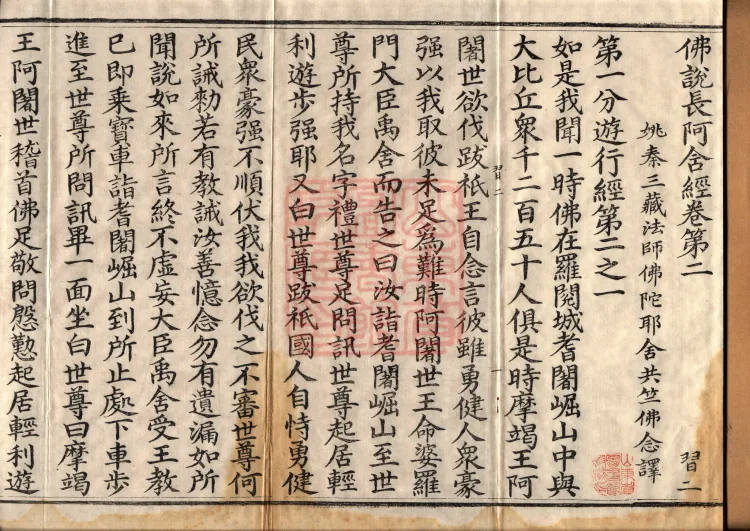 佛說長阿含經卷第二　習二
姚秦三藏法師佛陀耶舍共竺佛念譯
第一分遊行經第二之一
如是我聞一時佛在羅閱城耆闍崛山中與
大比丘衆千二百五十人俱是時摩竭王阿
闍世欲伐跋祇王自念言彼雖勇健人衆豪
習二
强以我取彼未足爲難時阿闍世王命婆羅
門大臣禹舍而告之曰汝詣耆闍崛山至世
尊所持我名字禮世尊足問訊世尊起居輕
利遊步强耶又白世尊跋祇國人自恃勇健
民衆豪强不順伏我我欲伐之不審世尊何
所誡勑若有教誡汝善憶念勿有遺漏如所
聞說如來所言終不虛妄大臣禹舍受王教
已即乘寶車詣耆闍崛山到所止處下車步
進至世尊所問訊畢一面坐白世尊曰摩竭
王阿闍世稽首佛足敬問慇懃起居輕利遊